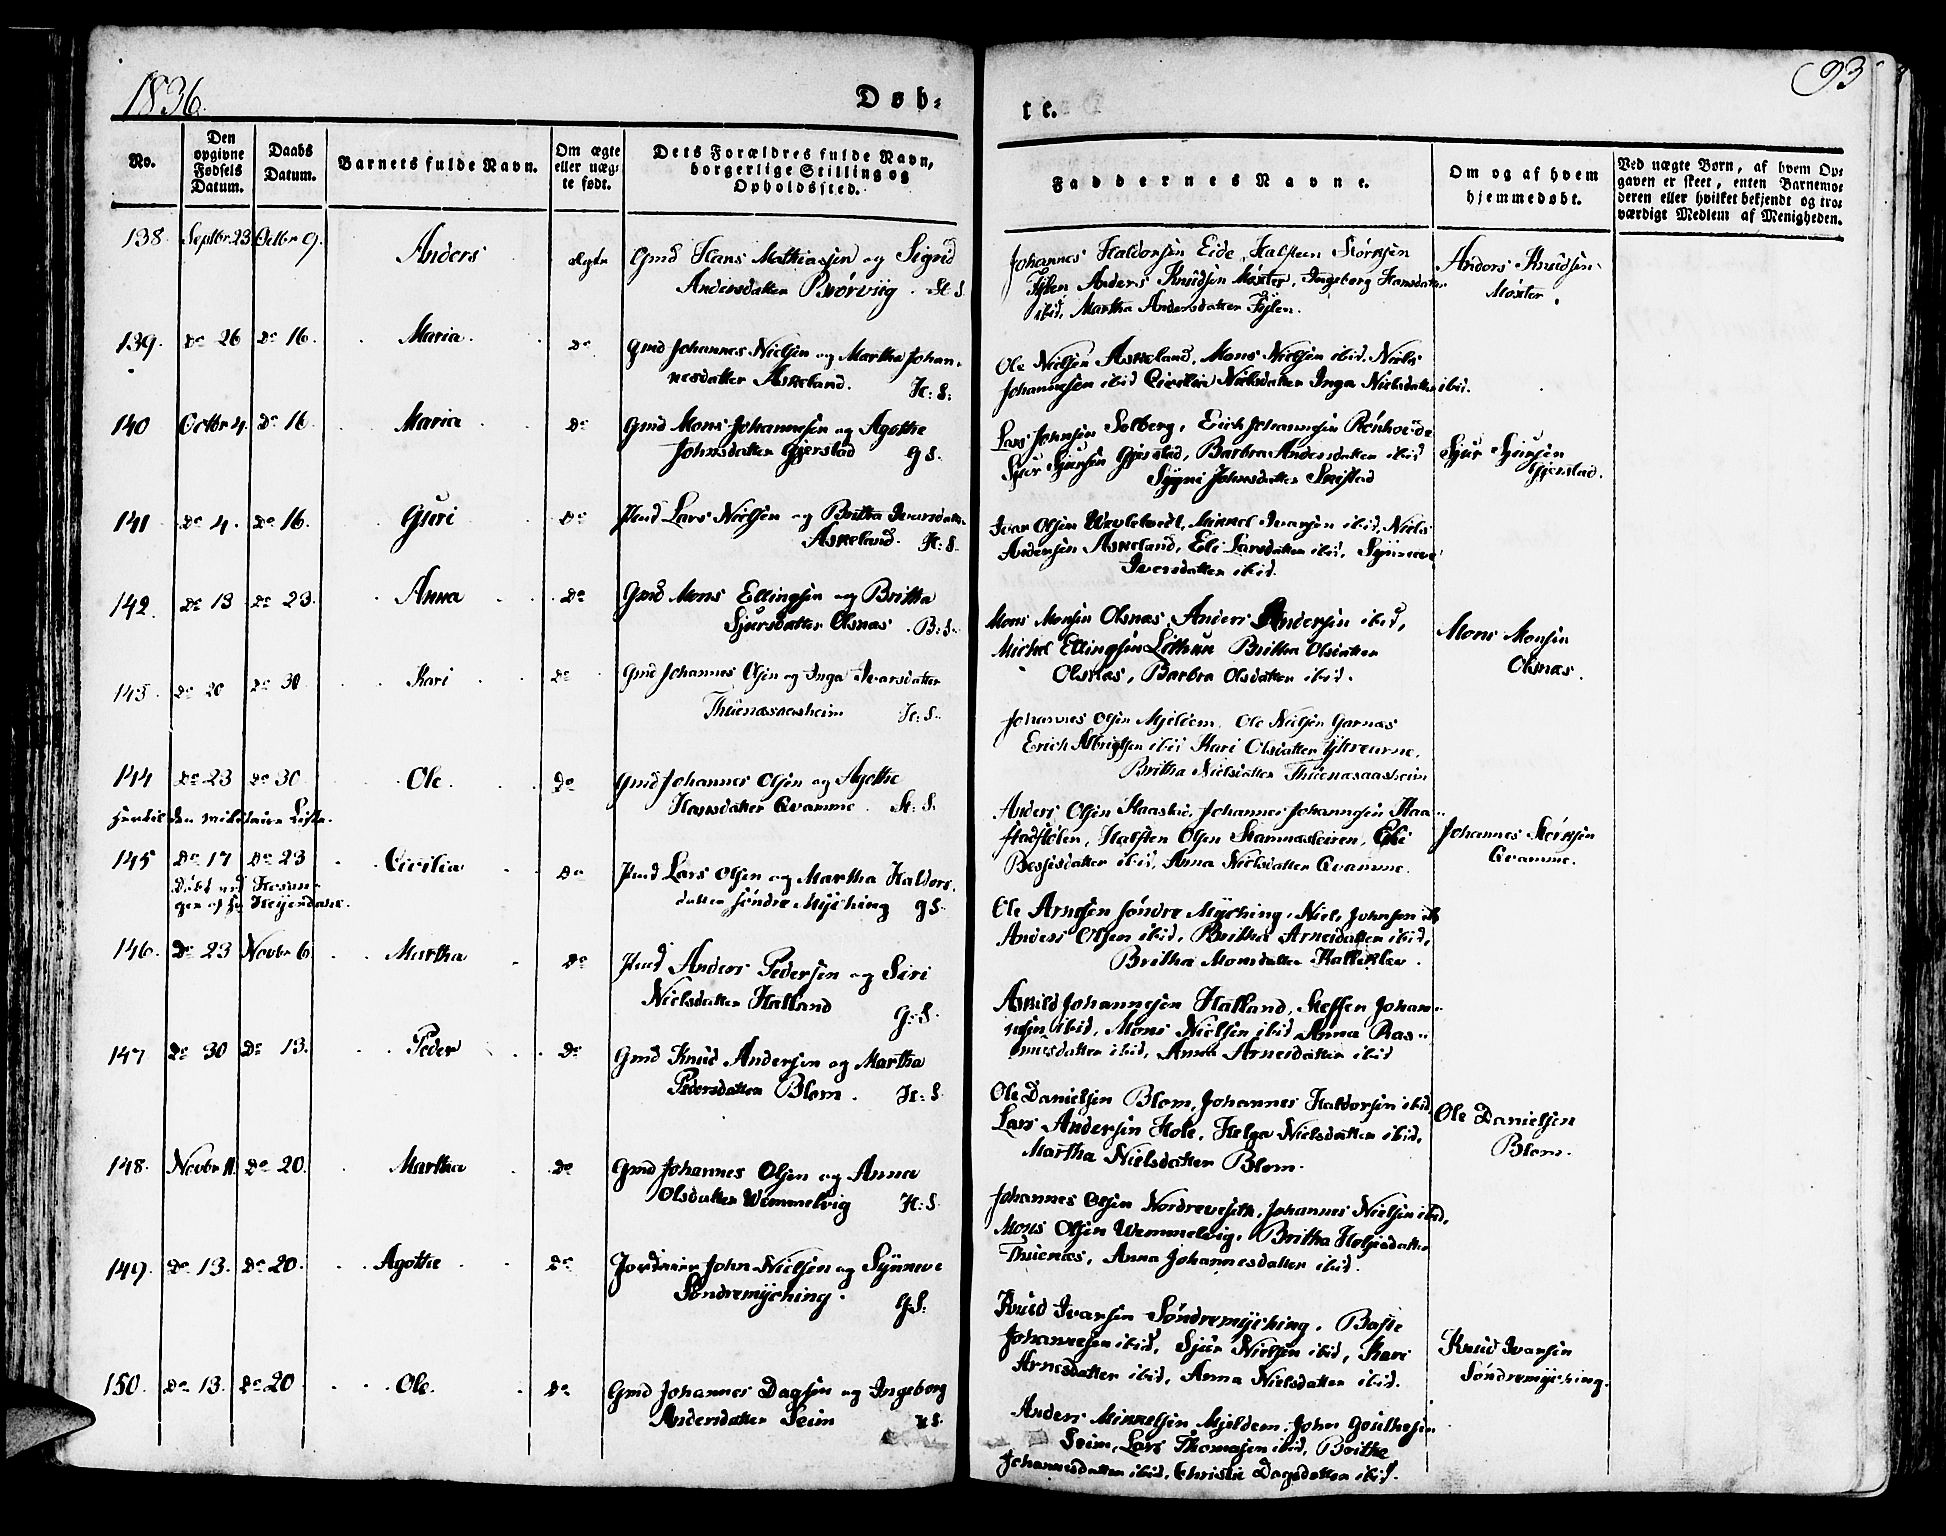 1836.
Døb-
te.
93
No.
Den opgivne Fødsels Datum.
Daabs Datum.
Barnets fulde Navn.
Om ægte eller uægte født.
Dets Forældres fulde Navn, borgerlige Stilling og Opholdssted.
Faddernes Navne.
Om og af hvem hjemmedøbt.
Ved uægte Børn, af hvem Opgaven er skeet, enten Barnemoderen eller hvilket bekjendt og troværdigt Medlem af Menigheden.
138. Septbr 23. Octbr 9. Anders ægte Gmd Hans Mathiassen og Sigrid
Andersdatter Rørvig. H. S.
Johannes Haldorsen Eide, Halsteen Størksen
Anders Knudsen Møster, Ingeborg Hansdatter
ibid, Martha Andersdatter
Anders Knudsen
Møster.
139. Do 26 Do 16. Maria. Do Gmd Johannes Nielsen og Martha Johan-
nesdatter Askeland. H: S:
Ole Nielsen Askeland, Mons Nielsen ibid. Niels
Johannesen ibid Cicilia Nielsdatter Inga Nielsdatter ibid.
140 Octbr 4. Do 16. Maria Do Gmd Mons Johannesen og Agothe
Johnsdatter Gjerstad G S.
Lars Johnsen Solberg, Erich Johannesen
Sjur Sjursen Gjerstad, Barbra Andersdatter ibid
Johnsdatter
Sjur Sjursen
Gjerstad.
141 Do 4. Do 16. Guri Do Pmd Lars Nielsen og Britha Iversdatter
Askeland. H: S.
Ivar Olsen Mikkel Ivarsen ibid, Niels
Andersen Askeland, Eli Larsdatter ibid, Synneve
Iversdatter ibid.
142. Do 13 Do 23. Anna Do Gmd Mons Ellingsen og Britha
Sjursdatter Olsnæs. B: S.
Mons Monsen Olsnæs, Anders Andersen ibid,
Michel Ellingsen Britha Olsdatter
Olsnæs, Barbra Olsdatter ibid.
Mons Monsen
Olsnæs.
143. Do 20 Do 30. Kari Do Gmd Johannes Olsen og Inga Ivarsdatter
Thuenæsaasheim H: S.
Johannes Olsen Mjeldem, Ole Nielsen Garnæs
Erich ibid Kari Olsdatter
Britha Nielsdatter Thuenæsaasheim
144 Do 23 Do 30 Ole. Do Gmd Johannes Olsen og Agothe
Hansdatter Qvamme. H: S.
den militaire Liste.
Anders Olsen Johannes Johannesen Haa-
Halsten Olsen Eli
ibid, Anna Nielsdatter Qvamme.
Johannes Størksen
Qvamme.
145 Do 17 Do 23 Cicilia Do Pmd Lars Olsen og Martha Haldors-
datter søndre Myching G S.
Døbt ved Hosan-
ger af Hr
Ole Arnesen søndre Myching, Niels Johnsen ib
Anders Olsen ibid, Britha Arnesdatter ibid,
Britha Monsdatter
146. Do 23 Novbr 6 Martha Do Pmd Anders Pedersen og Siri
Nielsdatter Hatland G: S.
Johannesen Hatland, Steffen Johan-
nesen ibid, Mons Nielsen ibid Anna Ras-
musdatter ibid, Anna Arnesdatter ibid
147 Do 30 Do 13. Peder Do Gmd Knud Andersen og Martha
Pedersdatter Blom. H: S.
Ole Danielsen Blom, Johannes Haldorsen ibid
Lars Andersen Hole, Helga Nielsdatter ibid,
Martha Nielsdatter Blom.
Ole Danielsen
Blom.
148. Novbr 11. Do 20. Martha Do Gmd Johannes Olsen og Anna
Olsdatter Wemmelvig H: S.
Johannes Olsen Johannes Nielsen ibid,
Mons Olsen Wemmelvig, Britha
Thuenæs, Anna Johannesdatter ibid.
149. Do 13. Do 20. Agothe Do John Nielsen og Synneve
Søndremyching. G: S:
Knud Ivarsen Søndremyching, Baste
Johannesen ibid, Sjur Nielsen ibid, Kari
Arnesdatter ibid, Anna Nielsdatter ibid.
Knud Ivarsen
Søndremyching.
150. Do 13. Do 20 Ole. Do Gmd Johannes Dagsen og Ingeborg
Andersdatter Seim H S.
Anders Mikkelsen Mjeldem, John
Seim, Lars Thomasen ibid, Britha
Johannesdatter ibid, Christi Dagsdatter ibid.